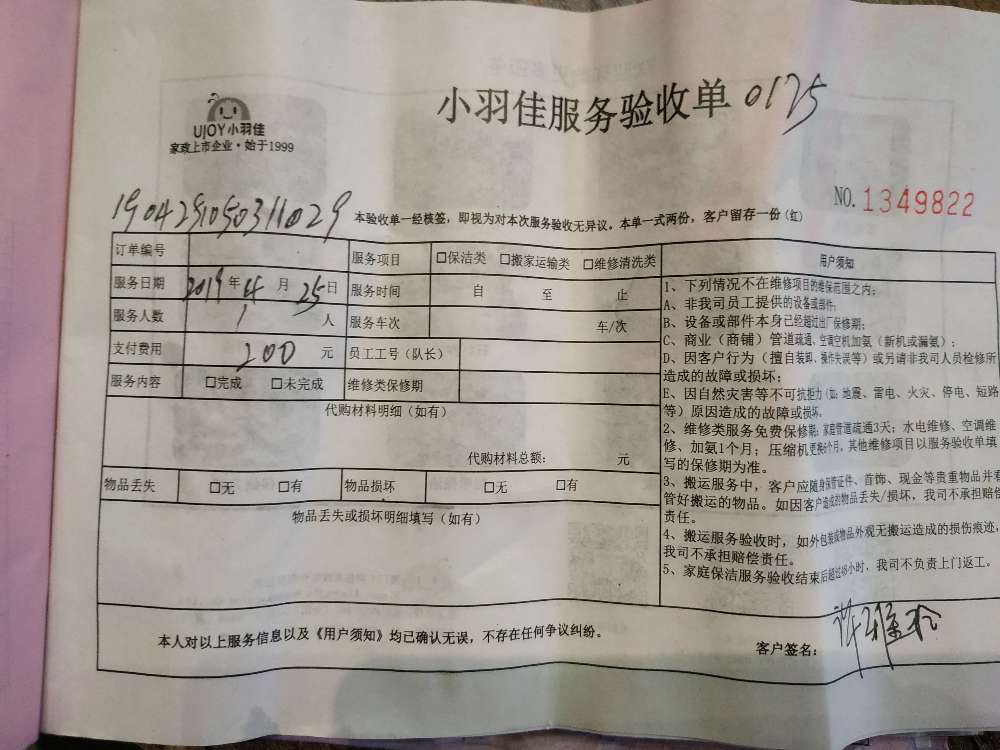 小羽佳服务验收单 0175
UJOY小羽佳
家政上市企业·始于1999
NO. 1349822
19042910503110029
本验收单一经核签，即视为对本次服务验收无异议。本单一式两份，客户留存一份(红)
订单编号 服务项目 □保洁类 □搬家运输类 □维修清洗类
服务日期 2019年4月25日 服务时间 自 至 止
服务人数 1 人 服务车次 车/次
支付费用 200 元 员工工号（队长）
服务内容 □完成 □未完成 维修类保修期
代购材料明细（如有）
代购材料总额： 元
物品丢失 □无 □有 物品损坏 □无 □有
物品丢失或损坏明细填写（如有）
用户须知
1、下列情况不在维修项目的维保范围之内：
A、非我司员工提供的设备或部件；
B、设备或部件本身已经超过出厂保修期；
C、商业（商铺）管道疏通、空调空机加氨（新机或漏氨）；
D、因客户行为（擅自装卸、操作失误等）或另请非我司人员检修所
造成的故障或损坏；
E、因自然灾害等不可抗拒力（如：地震、雷电、火灾、停电、短路
等）原因造成的故障或损坏。
2、维修类服务免费保修期：家庭管道疏通3天；水电维修、空调维
修、加氨1个月；压缩机更换6个月，其他维修项目以服务验收单填
写的保修期为准。
3、搬运服务中，客户应随身保管证件、首饰、现金等贵重物品并看
管好搬运的物品。如因客户造成的物品丢失/损坏，我司不承担赔偿
责任。
4、搬运服务验收时，如外包装或物品外观无搬运造成的损伤痕迹，
我司不承担赔偿责任。
5、家庭保洁服务验收结束后超过48小时，我司不负责上门返工。
本人对以上服务信息以及《用户须知》均已确认无误，不存在任何争议纠纷。
客户签名：